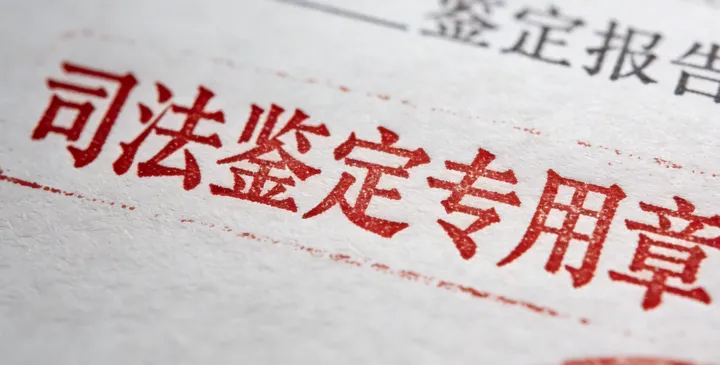 鉴定报告
司法鉴定专用章